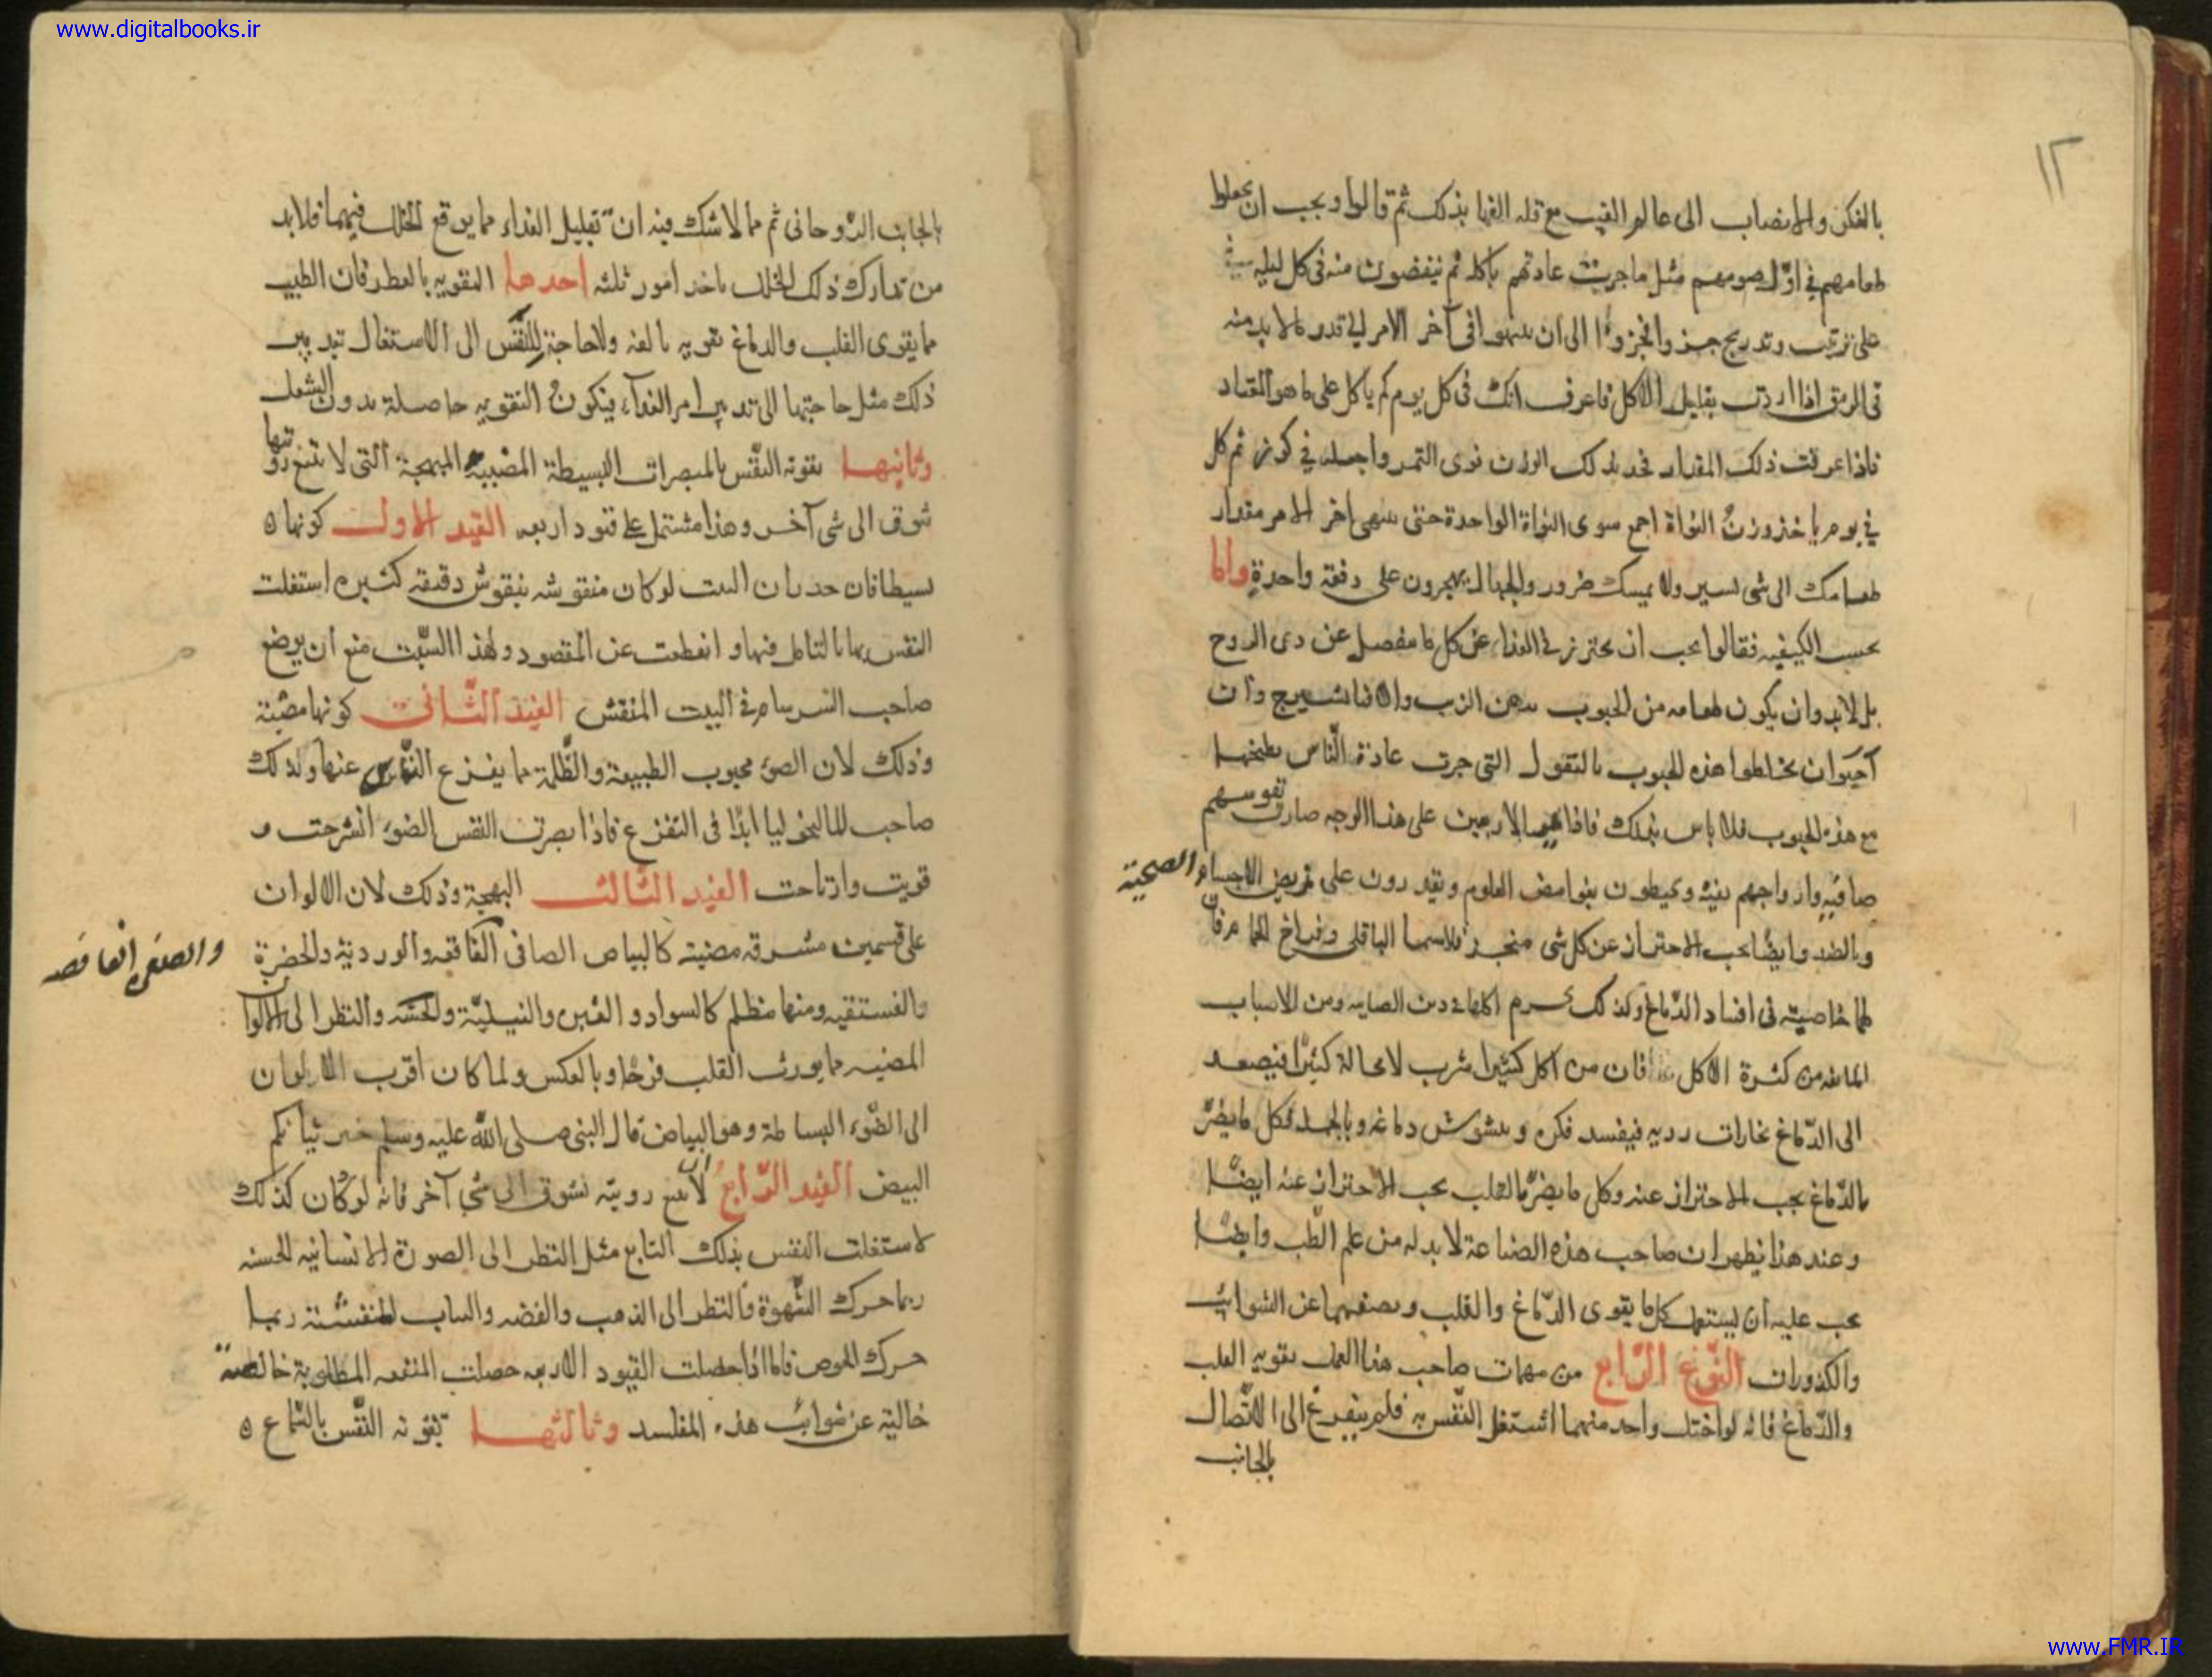 www.digitalbooks.ir
١٢
بالفكر والانصاب الى عالم الغيب مع قلة الغذا بذلك ثم قالوا ويجب ان يجعلوا
طعامهم في اوّل صومهم مثل ما جرت عادتهم باكله ثم ينقصون منه في كل ليلة
على ترتيب وتدريج جزوا فجزوا الى ان ينتهوا في آخر الامر الى قدر ما لا بد منه
في الرمق اذا اردت تقليل الاكل فاعرف انك في كل يوم كم ياكل على ما هو المعتاد
فاذا عرفت ذلك المقدار فخذ بذلك الوزن نوى التمر واجعله في كوز ثم كل
في يوم ياخذ وزن النواة اجمع سوى النواة الواحدة حتى ينتهي اخر الامر مقدار
طعامك الى شي يسير ولا يمسك ضرور والجهال يهجرون على دفعة واحدة واما
بحسب الكيفيه فقالوا يجب ان يحترز في الغذاء عن كل ما مفصل عن ذى الروح
بل لابد وان يكون طعامه من الحبوب بدهن الزيت والا فالشيرج وان
احبوا ان يخلطوا هذه الحبوب بالبقول التي جرت عادة النّاس بطبخها
مع هذه الحبوب فلا باس بذلك فاذا تمم الاربعين على هذا الوجه صارت نفوسهم
صافية وارواحهم نيّرة ويحيطون بغوامض العلوم ويقدرون على تمريض الاجسام الصحيحة
وبالضد وايضا يجب الاحتراز عن كل شى مبخر لاسيما الباقلى وفراخ الحمام فان
لها خاصية في افساد الدّماغ ولذلك يحرم اكلها في دين الصابيه ومن الاسباب
المانعه من كثرة الاكل فان من اكل كثيرا شرب لا محالة كثيرا فيصعد
الى الدّماغ بخارات رديه فيفسد فكره ويشوش دماغه وبالجملة فكل ما يضرّ
بالدّماغ يجب الاحتراز عنه وكل ما يضرّ بالقلب يجب الاحتراز عنه ايضًا
وعند هذا يظهر ان صاحب هذه الصناعة لا بد له من علم الطّب وايضًا
يجب عليه ان يستعمل كل ما يقوى الدّماغ والقلب ويصفيهما عن الشوائب
والكدورات النّوع الرّابع من مهمات صاحب هذا العمل تقويه القلب
والدّماغ فانه لو اختل واحد منهما اشتغل النّفس به فلم يتفرغ الى الاتّصال
بالجانب
بالجانب الرّوحانى ثم مما لا شك فيه ان تقليل الغذاء مما يوقع الخلل فيهما فلابد
من تدارك ذلك الخلل باخذ امور ثلثه احدها التقويه بالعطر فان الطيب
مما يقوى القلب والدماغ تقويه بالغه ولا حاجة للنّفس الى الاشتغال بتدبير
ذلك مثل حاجتها الى تدبير امر الغذاء فيكون التقويه حاصلة بدون الشغل
وثانيها تقوية النّفس بالمبصرات البسيطة المضيئة المبهجة التى لا تتبع رؤيتها
شوق الى شى آخر وهذا مشتمل على قيود اربعه القيد الاول كونها
بسيطا فان جدران البيت لو كان منقوشه بنقوش دقيقة كثيره اشتغلت
النفس بها بالتامل فيها وانقطعت عن المقصود ولهذا السّبب منع ان يوضع
صاحب السرسام في البيت المنقش القيد الثّانى كونها مضيئة
وذلك لان الضوء محبوب الطبيعة والظّلمة مما يفزع النّفس عنها ولذلك
صاحب الماليخوليا ابدًا فى التفزع فاذا ابصرت النفس الضوء انشرحت و
قويت وارتاحت القيد الثّالث البهجة وذلك لان الالوان
على قسمين مشرقة مضيئه كالبياض الصافى الفاقع والوردية والخضرة
والصفرة الفاقعة
والفستقيه ومنها مظلم كالسواد والغبره والنيليّة والنظر الى الالوان
المضيه مما يورث القلب فرحًا وبالعكس ولما كان اقرب الالوان
الى الضّوء البساطة وهو البياض قال النبى صلى الله عليه وسلم خير ثيابكم
البيض القيد الرّابع لا تتبع رويته شوق الى شى آخر فانه لو كان كذلك
لاشتغلت النفس بذلك التابع مثل النظر الى الصورة الانسانيه الحسنه
ربما حرك الشّهوة والنظر الى الذهب والفضه والثياب المنقشة ربما
حرك الحرص فاما اذا حصلت القيود الاربعه حصلت المنفعه المطلوبة خالصة
خالية عن شوائب هذه المفاسد وثالثها تقوية النّفس بالسّماع
www.FMR.IR